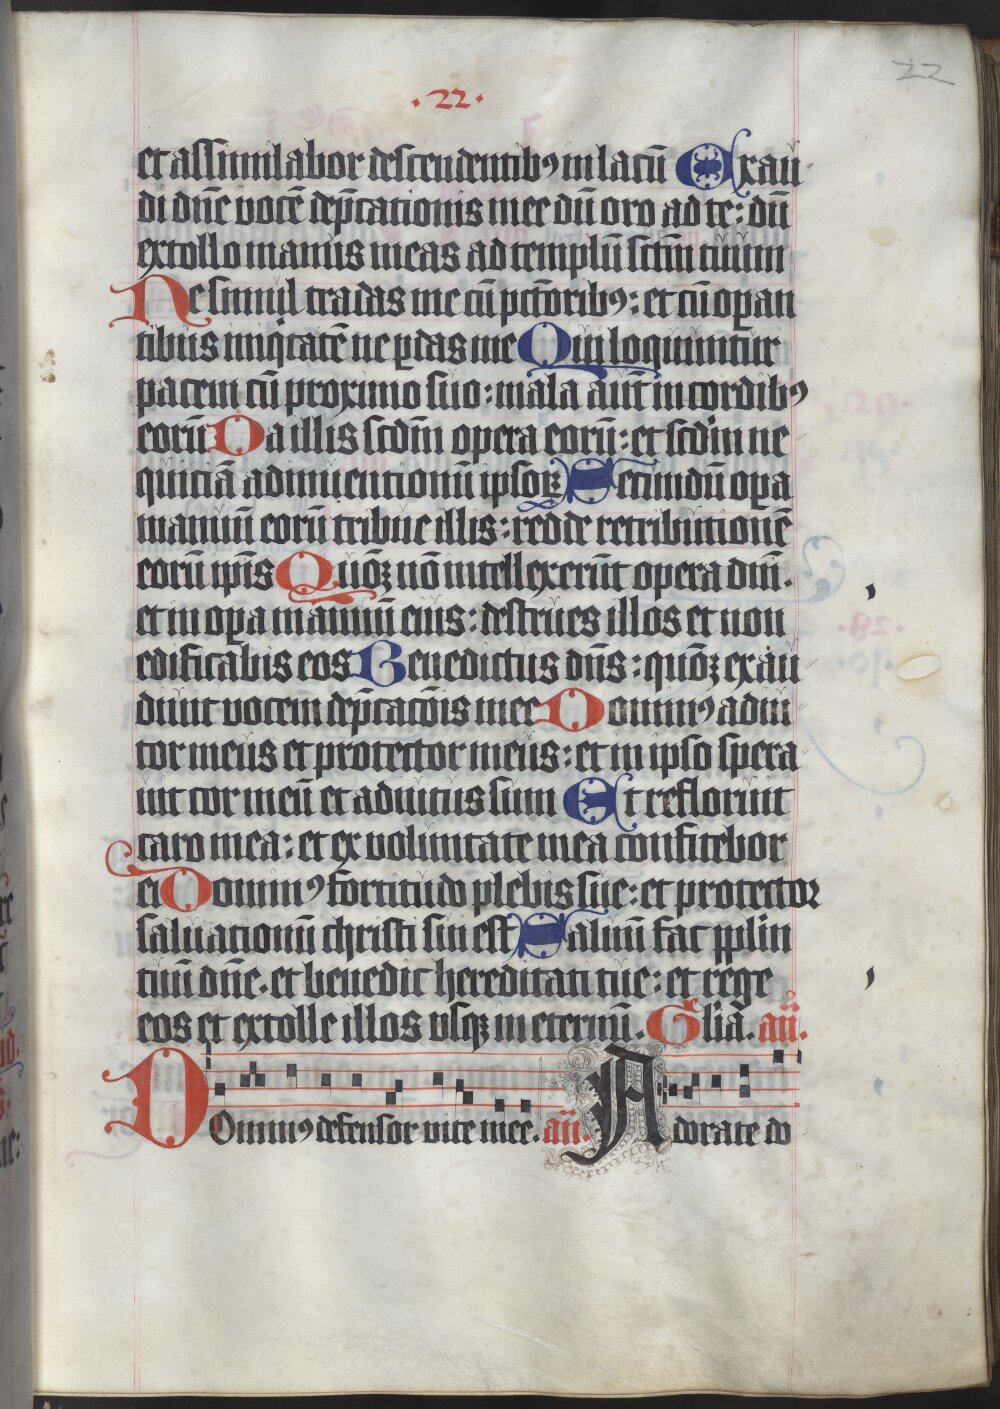 22
·22·
et assimilabor descendentibꝰ in lacū Exau
di dn̄e vocē dep̄cationis mee dū oro ad te: dū
extollo manus meas ad templū sc̄m tuum
Ne simul tradas me cū pc̄toribꝰ: et cū oꝑan
tibus iniq̇tatē ne ꝑdas me Qui loquuntur
pacem cū proximo suo: mala aūt in cordibꝰ
eorū Da illis scd̄m opera eorū: et scd̄m ne
quiciā adinuentionū ipsoꝝ Secundū oꝑa
manuū eorū tribue illis: redde retributionē
eorū ip̄is Quō̄ꝫ nō intellexerūt opera dn̄i.
et in oꝑa manuū eius: destrues illos et non
edificabis eos Benedictus dn̄s: quō̄ꝫ exau
diuit vocem dep̄cac̄ois mee Dominꝰ adiu
tor meus et protector meus: et in ipso spera
uit cor meū et adiutus sum Et refloruit
caro mea: et ex voluntate mea confitebor
ei Dominꝰ fortitudo plebis sue: et protector
saluationū christi sui est Saluū fac pp̄lm
tuū dn̄e. et benedic hereditati tue: et rege
eos et extolle illos vsqꝫ in eternū. Gl̄ia. an̄.
Dominꝰ defensor vite mee. an̄. Adorate do